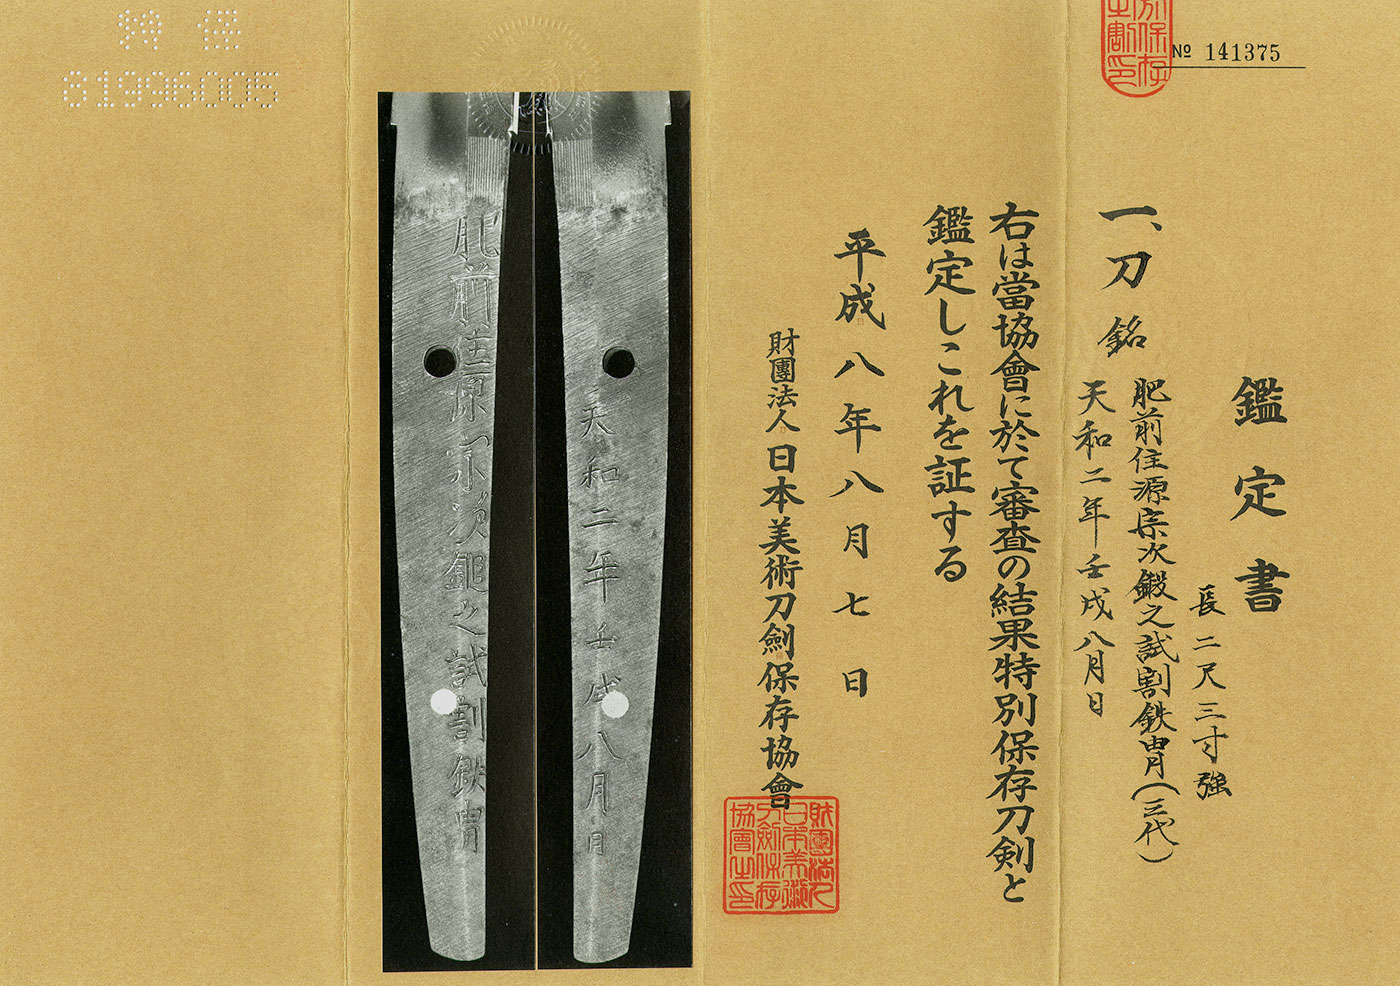 № 141375
鑑定書
長二尺三寸強
一、刀 銘 肥前住源宗次鍛之試割鉄冑(三代)
天和二年壬戌八月日
右は當協會に於て審査の結果特別保存刀剣と
鑑定しこれを証する
平成八年八月七日
財團法人日本美術刀劍保存協會
財團法人日本美術刀劍保存協會之印
天和二年壬戌八月日
肥前住源宗次鍛之試割鉄冑
特保
81996005